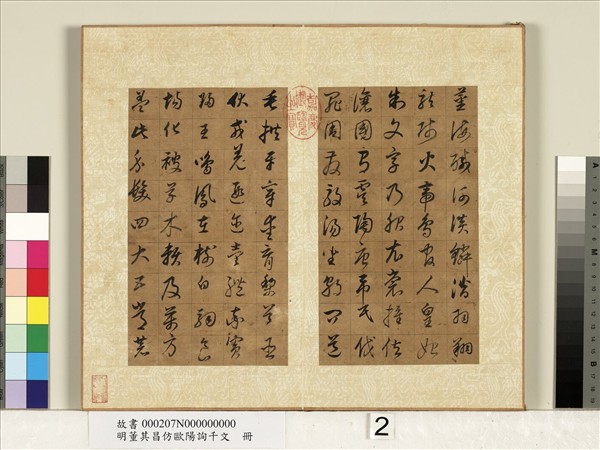 薑海鹹河淡鱗潛羽翔
龍師火帝鳥官人皇始
制文字乃服衣裳推位
讓國有虞陶唐弔民伐
罪周發殷湯坐朝問道
嘉慶御覽之寶
垂拱平章愛育黎首臣
伏戎羌遐邇壹體率賓
歸王鳴鳳在樹白駒食
場化被草木賴及萬方
蓋此身髮四大五常恭
故書 000207N000000000
明董其昌仿歐陽詢千文 冊
2